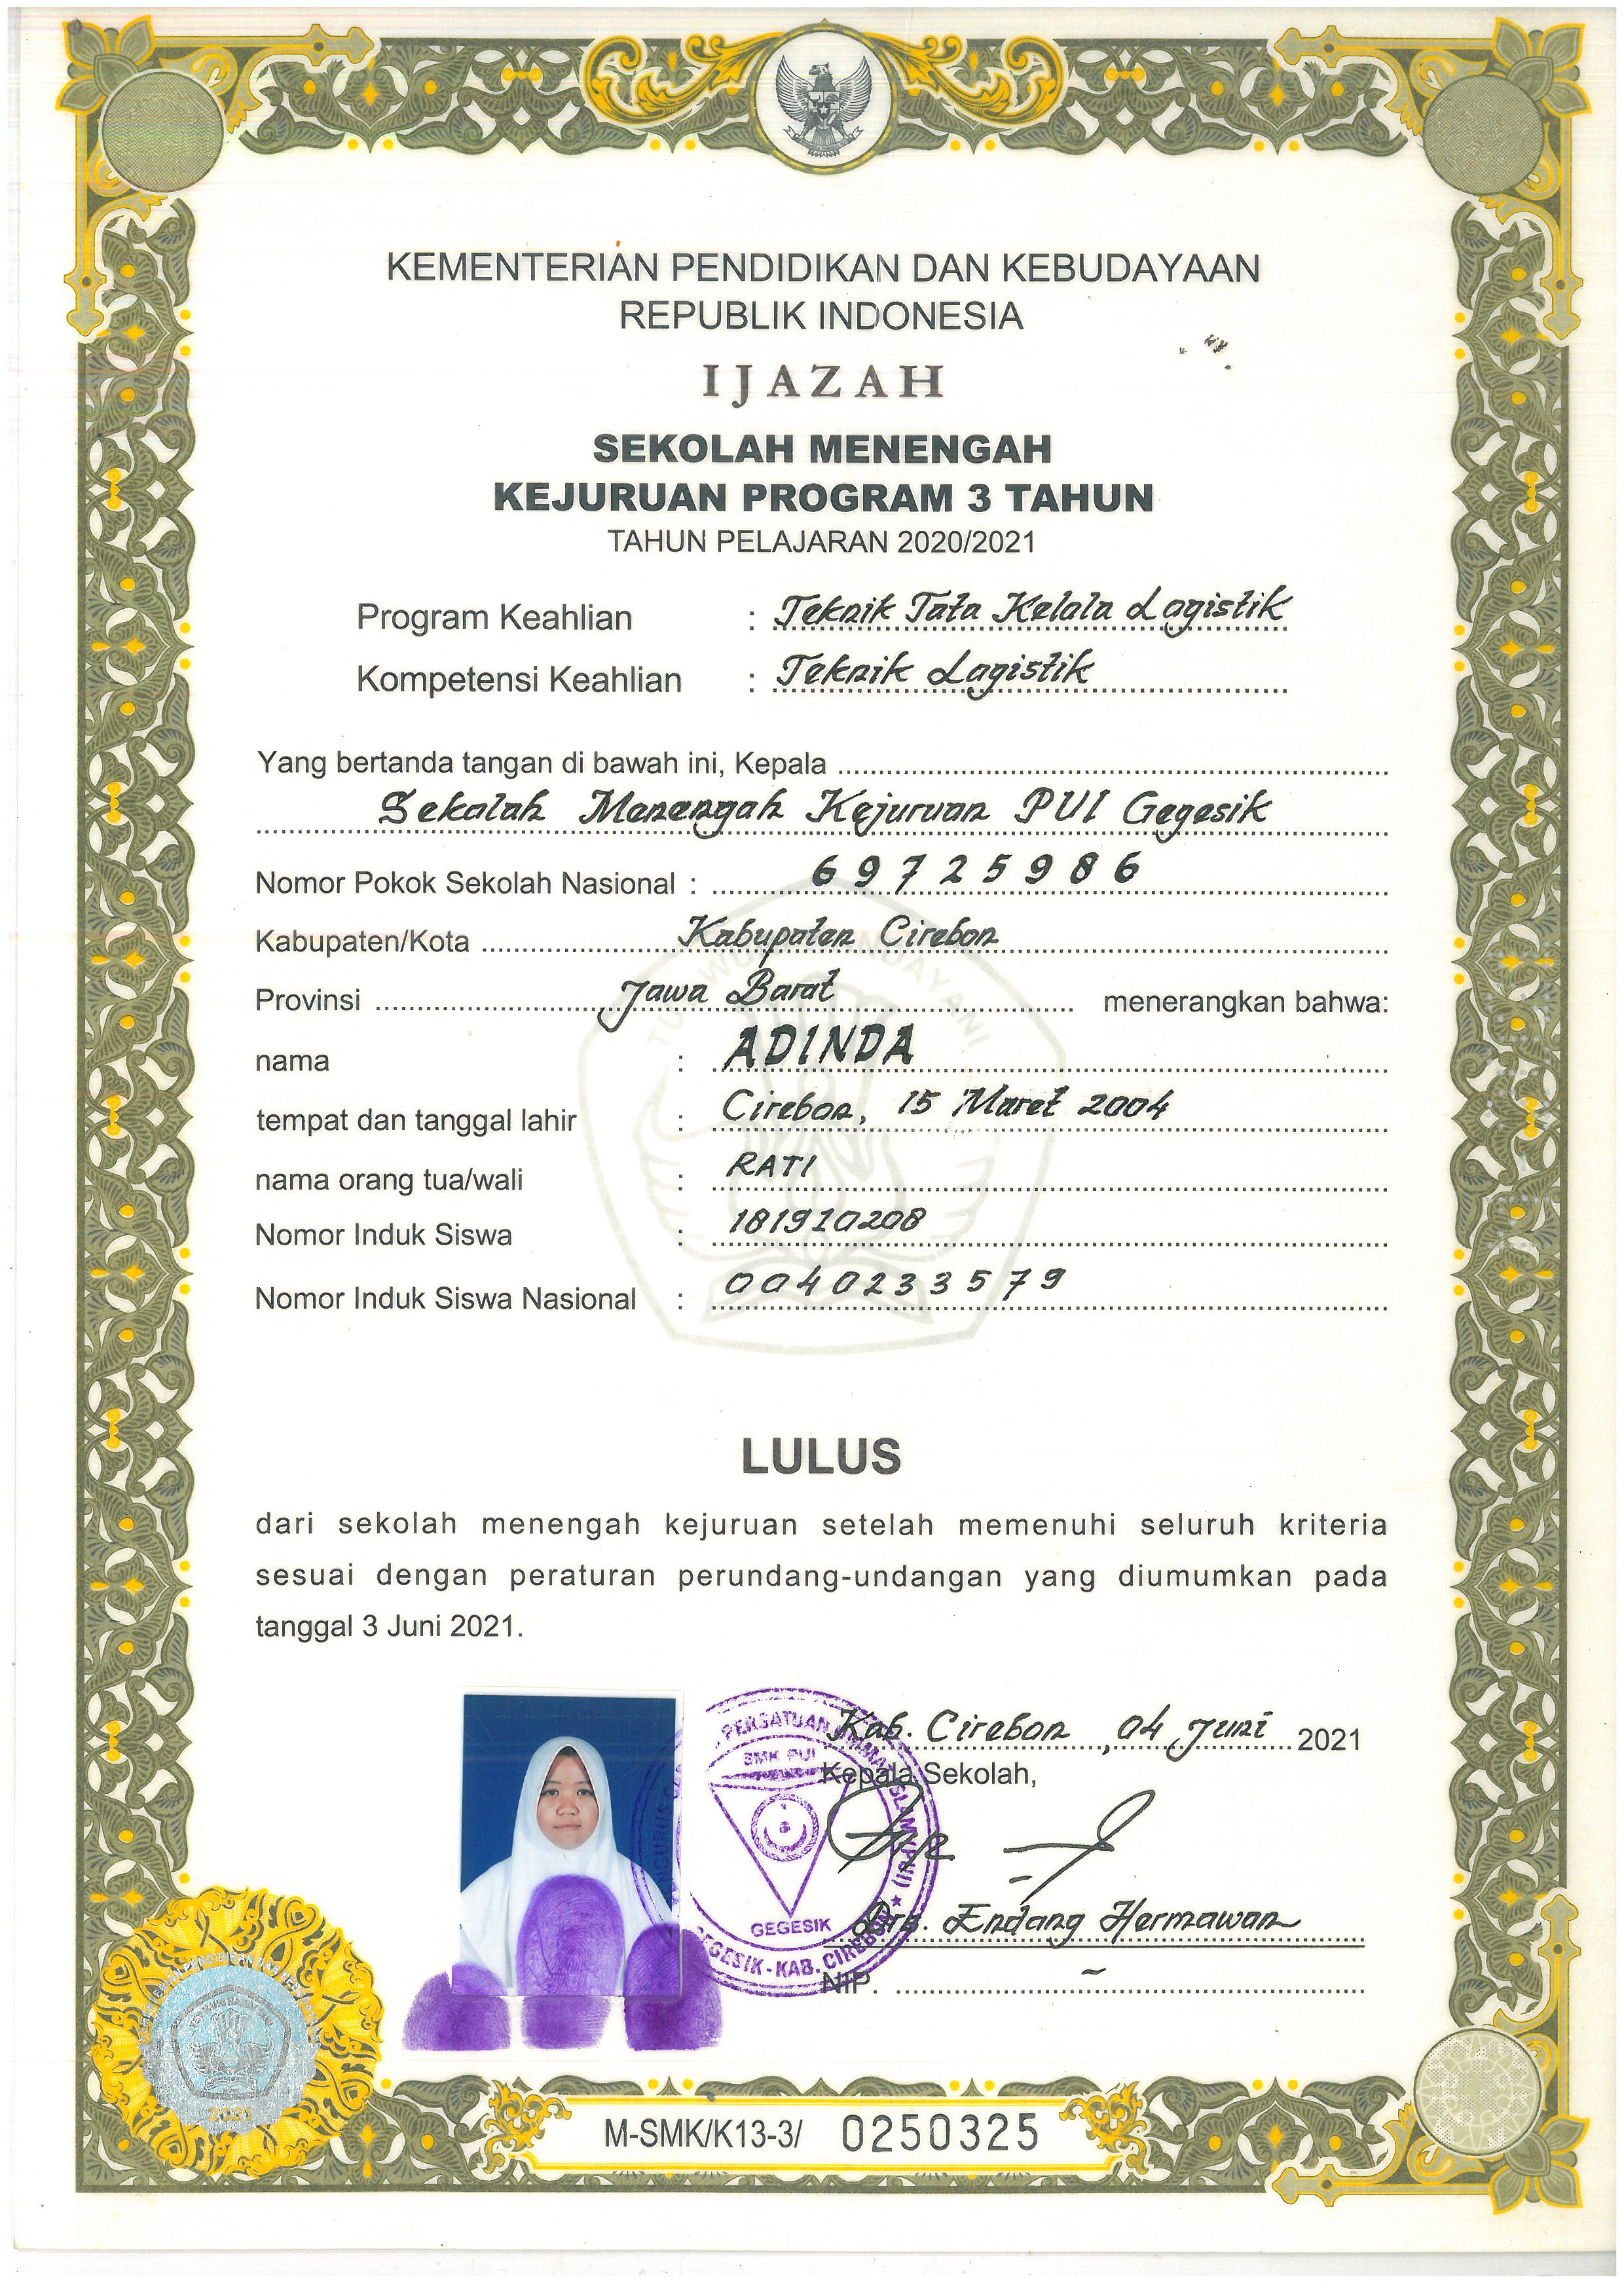 KEMENTERIAN PENDIDIKAN DAN KEBUDAYAAN
REPUBLIK INDONESIA
IJAZAH
SEKOLAH MENENGAH
KEJURUAN PROGRAM 3 TAHUN
TAHUN PELAJARAN 2020/2021
Program Keahlian : Teknik Tata Kelola Logistik
Kompetensi Keahlian : Teknik Logistik
Yang bertanda tangan di bawah ini, Kepala
Sekolah Menengah Kejuruan PUI Gegesik
Nomor Pokok Sekolah Nasional : 69725986
Kabupaten/Kota Kabupaten Cirebon
Provinsi Jawa Barat menerangkan bahwa:
nama : ADINDA
tempat dan tanggal lahir : Cirebon, 15 Maret 2004
nama orang tua/wali : RATI
Nomor Induk Siswa : 181910208
Nomor Induk Siswa Nasional : 0040233579
LULUS
dari sekolah menengah kejuruan setelah memenuhi seluruh kriteria
sesuai dengan peraturan perundang-undangan yang diumumkan pada
tanggal 3 Juni 2021.
Kab. Cirebon, 04 Juni 2021
Kepala Sekolah,
PERSATUAN UMMAT ISLAM (PUI)
SMK PUI
GEGESIK
GEGESIK - KAB. CIREBON
Drs. Endang Hermawan
NIP. -
2021
M-SMK/K13-3/ 0250325